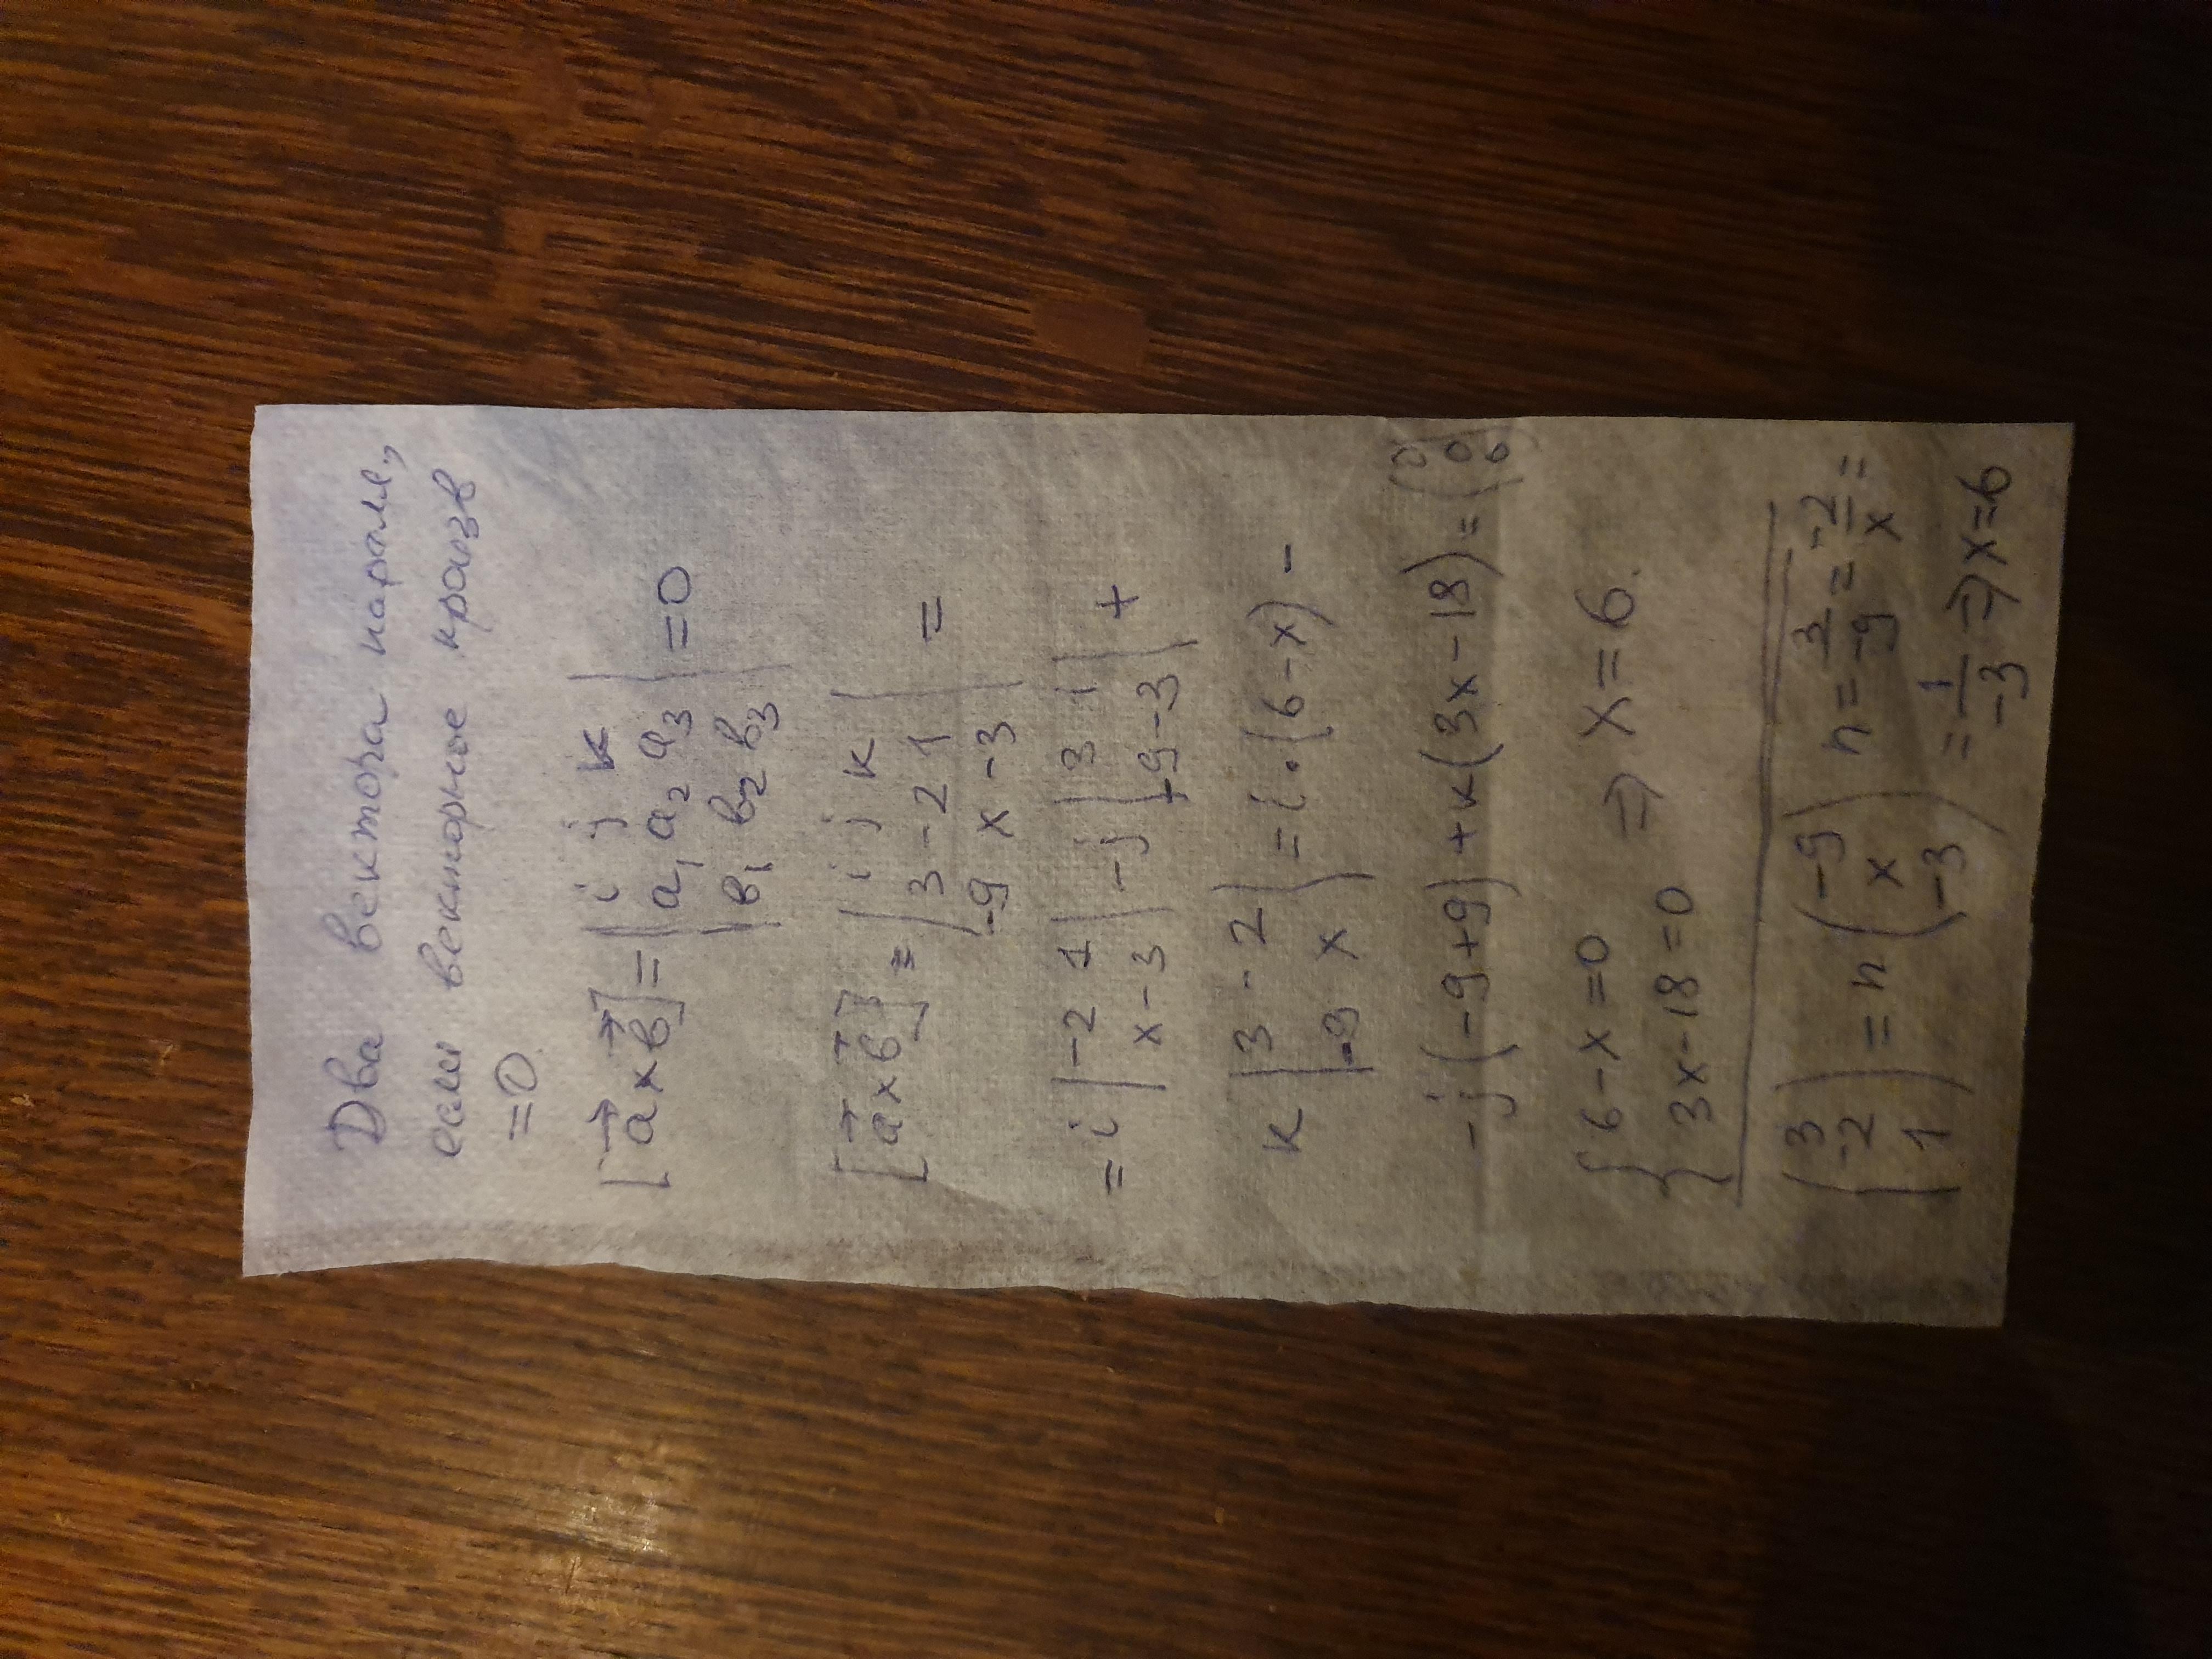 Два вектора паралл,
если векторное произв
=0
[a⃗×b⃗]=|i j k
a₁ a₂ a₃
в₁ в₂ в₃|=0
[a⃗×b⃗]=|i j k
3 -2 1
-9 x -3| =
=i|-2 1
x -3| -j|3 1
-9 -3| +
k|3 -2
-9 x|=i·(6-x) -
-j(-9+9)+k(3x-18)=(0
0
0)
{6-x=0
3x-18=0 ⇒ x=6.
(3
-2
1)=n(-9
x
-3) n=3/-9=-2/x=
=1/-3⇒x=6